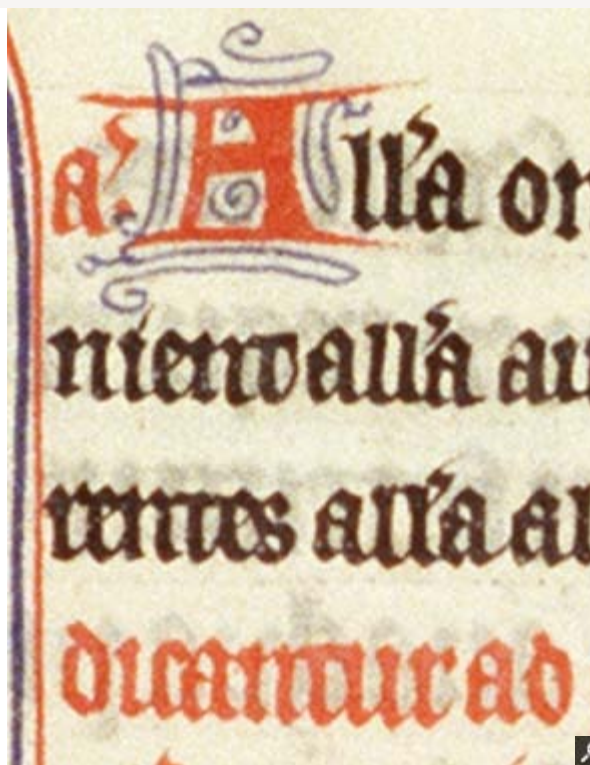 a' All'a
niendo all'a au
rentes all'a al
dicantur ad